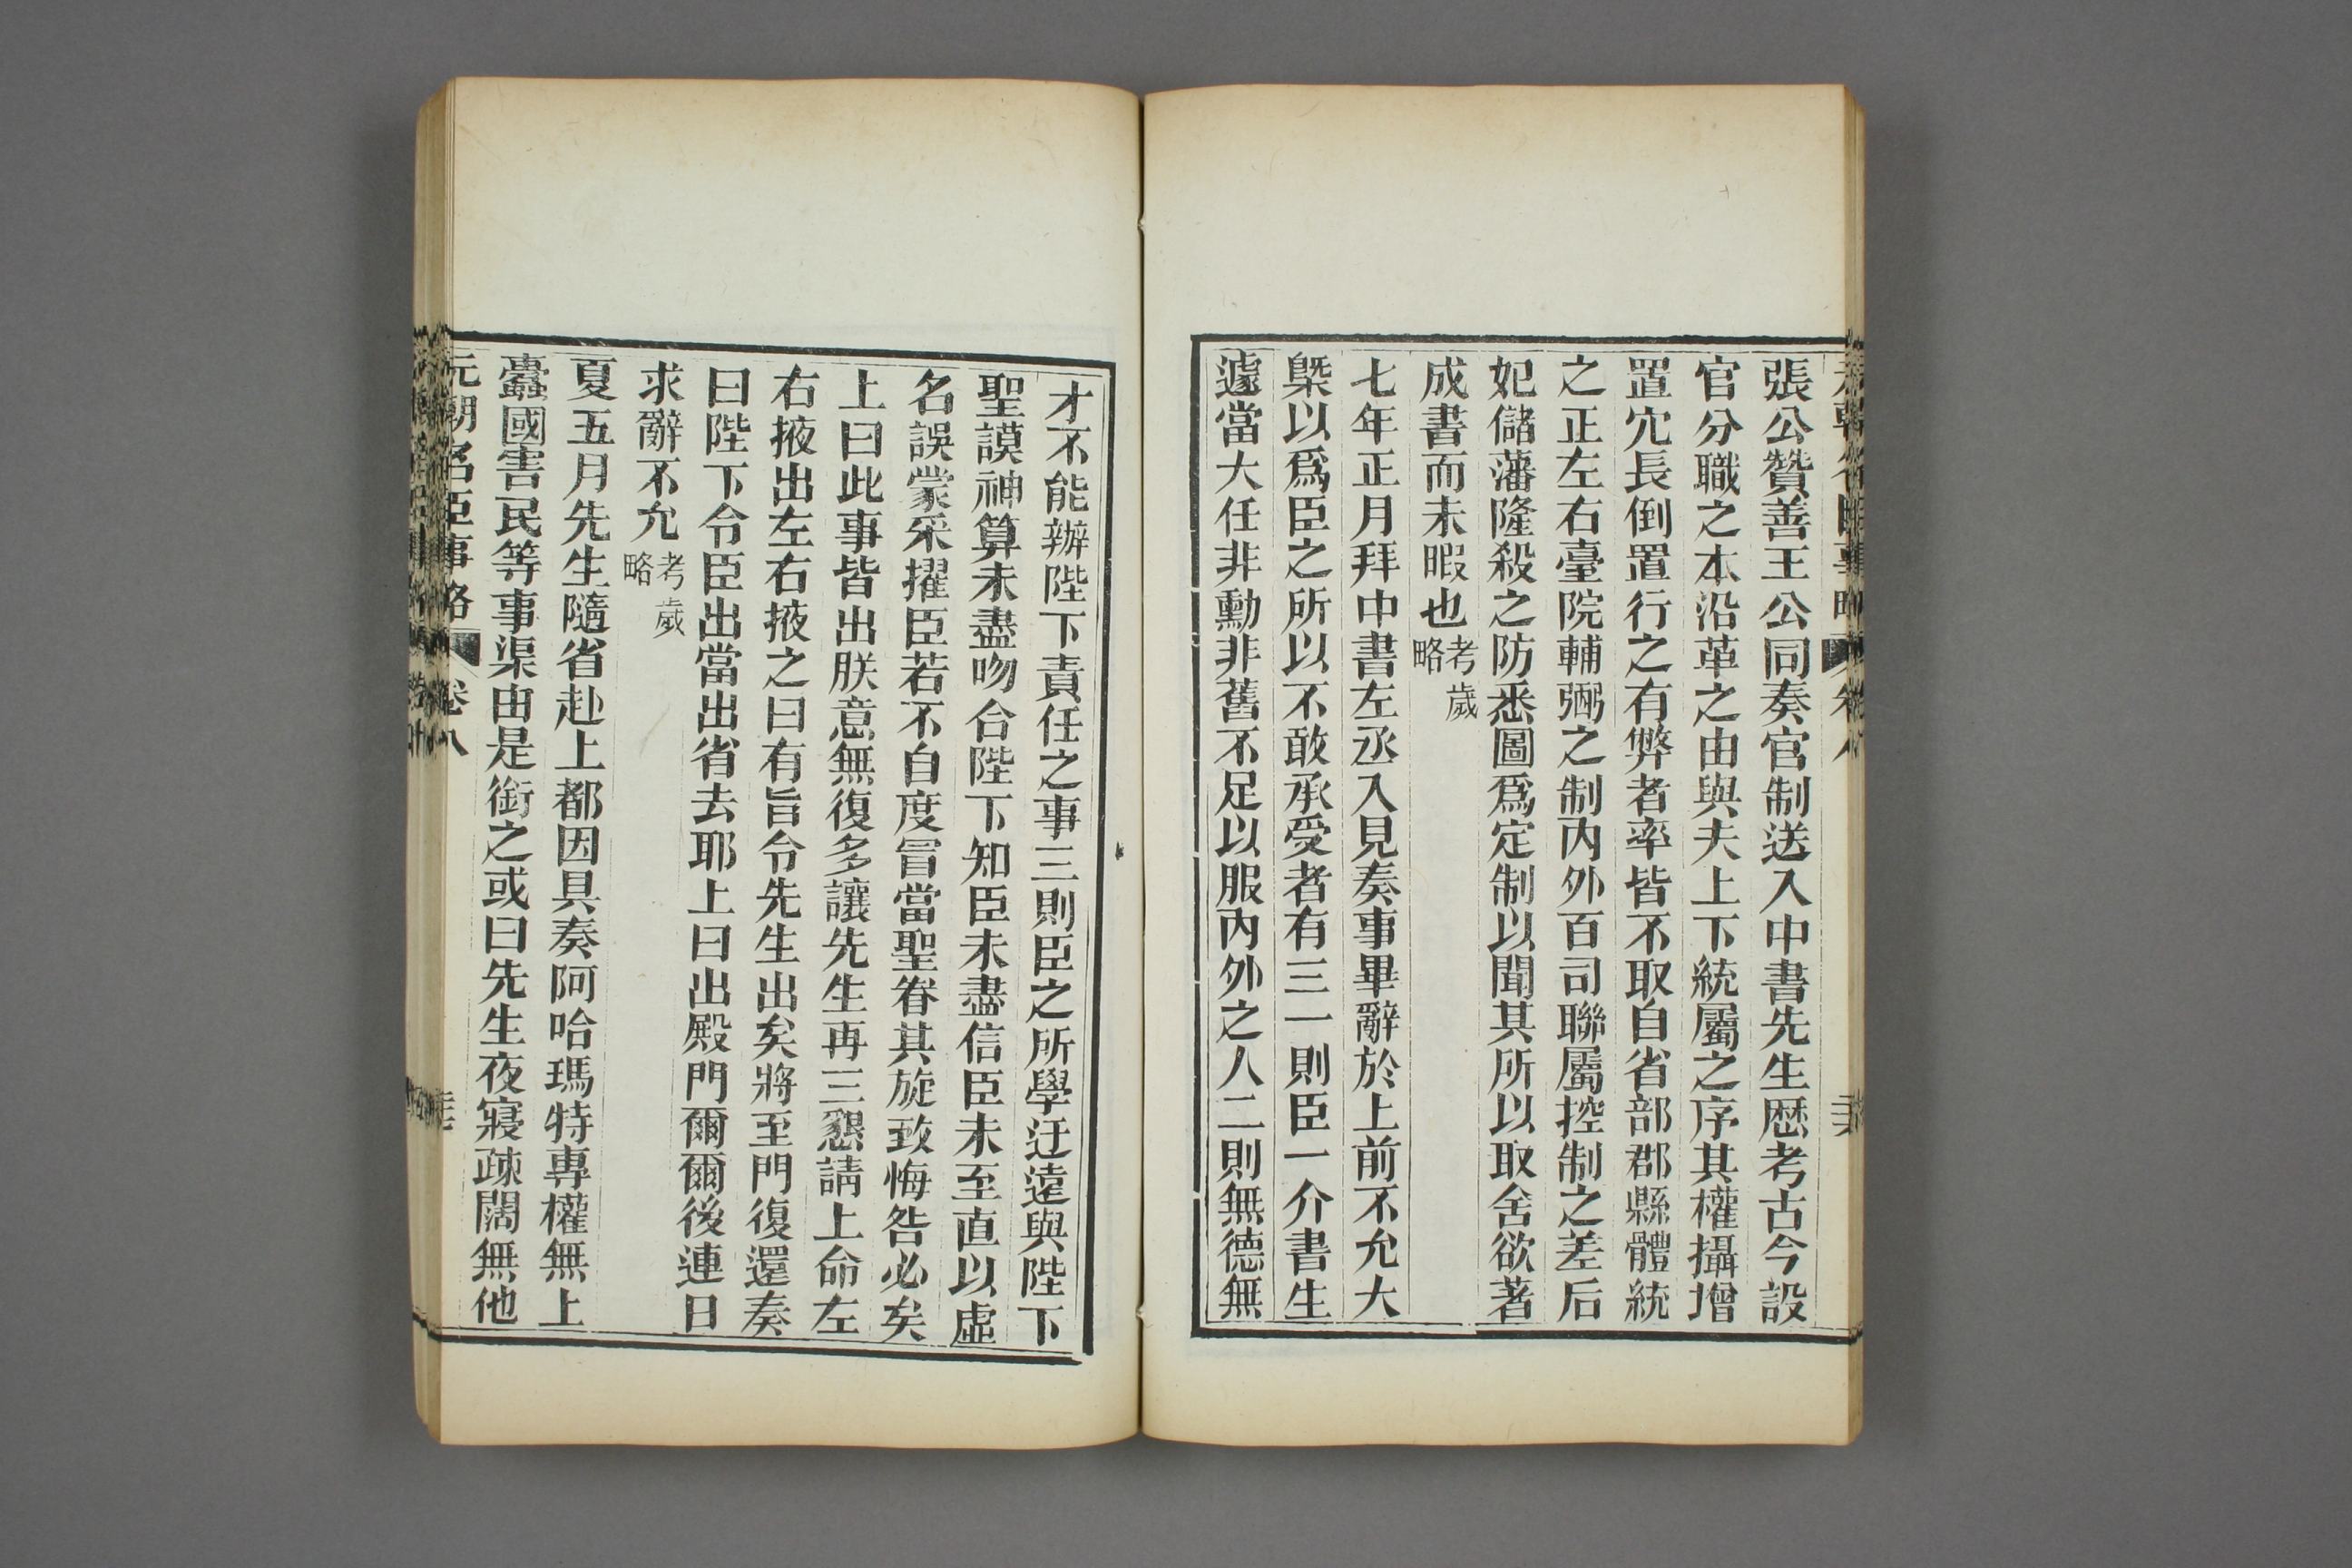 張公贊善王公同奏官制送入中書先生歷考古今設
官分職之本沿革之由與夫上下統屬之序其權攝增
置冗長倒置行之有弊者率皆不取自省部郡縣體統
之正左右臺院輔弼之制內外百司聯屬控制之差后
妃儲藩隆殺之防悉圖爲定制以聞其所以取舍欲著
成書而未暇也考歲略
七年正月拜中書左丞入見奏事畢辭於上前不允大
槩以爲臣之所以不敢承受者有三一則臣一介書生
遽當大任非勳非舊不足以服內外之人二則無德無
才不能辦陛下責任之事三則臣之所學迂遠與陛下
聖謨神算未盡吻合陛下知臣未盡信臣未至直以虛
名誤蒙采擢臣若不自度冒當聖眷其旋致悔咎必矣
上曰此事皆出朕意無復多讓先生再三懇請上命左
右掖出左右掖之曰有旨令先生出矣將至門復還奏
曰陛下令臣出當出省去耶上曰出殿門爾爾後連日
求辭不允考歲略
夏五月先生隨省赴上都因具奏阿哈瑪特專權無上
蠹國害民等事渠由是銜之或曰先生夜寢疎闊無他
元朝名臣事略 卷八